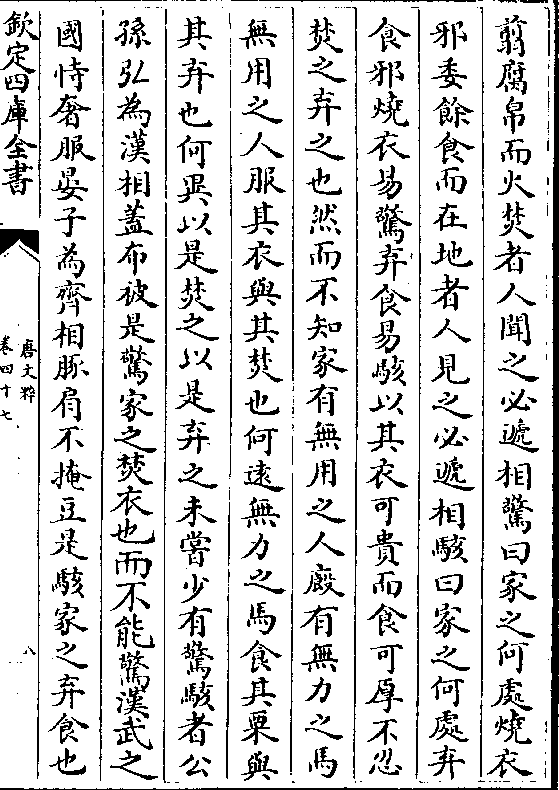 翦腐帛而火焚者人聞之必遞相驚曰家之何處燒衣
邪委餘食而在地者人見之必遞相駭曰家之何處弃
食邪燒衣易驚弃食易駭以其衣可貴而食可厚不忍
焚之弃之也然而不知家有無用之人廄有無力之馬
無用之人服其衣與其焚也何遠無力之馬食其粟與
其弃也何異以是焚之以是弃之未嘗少有驚駭者公
孫弘為漢相蓋布被是驚家之焚衣也而不能驚漢武之
國恃奢服晏子為齊相豚肩不掩豆是駭家之弃食也
欽定四庫全書
唐文粹
卷四十七
八